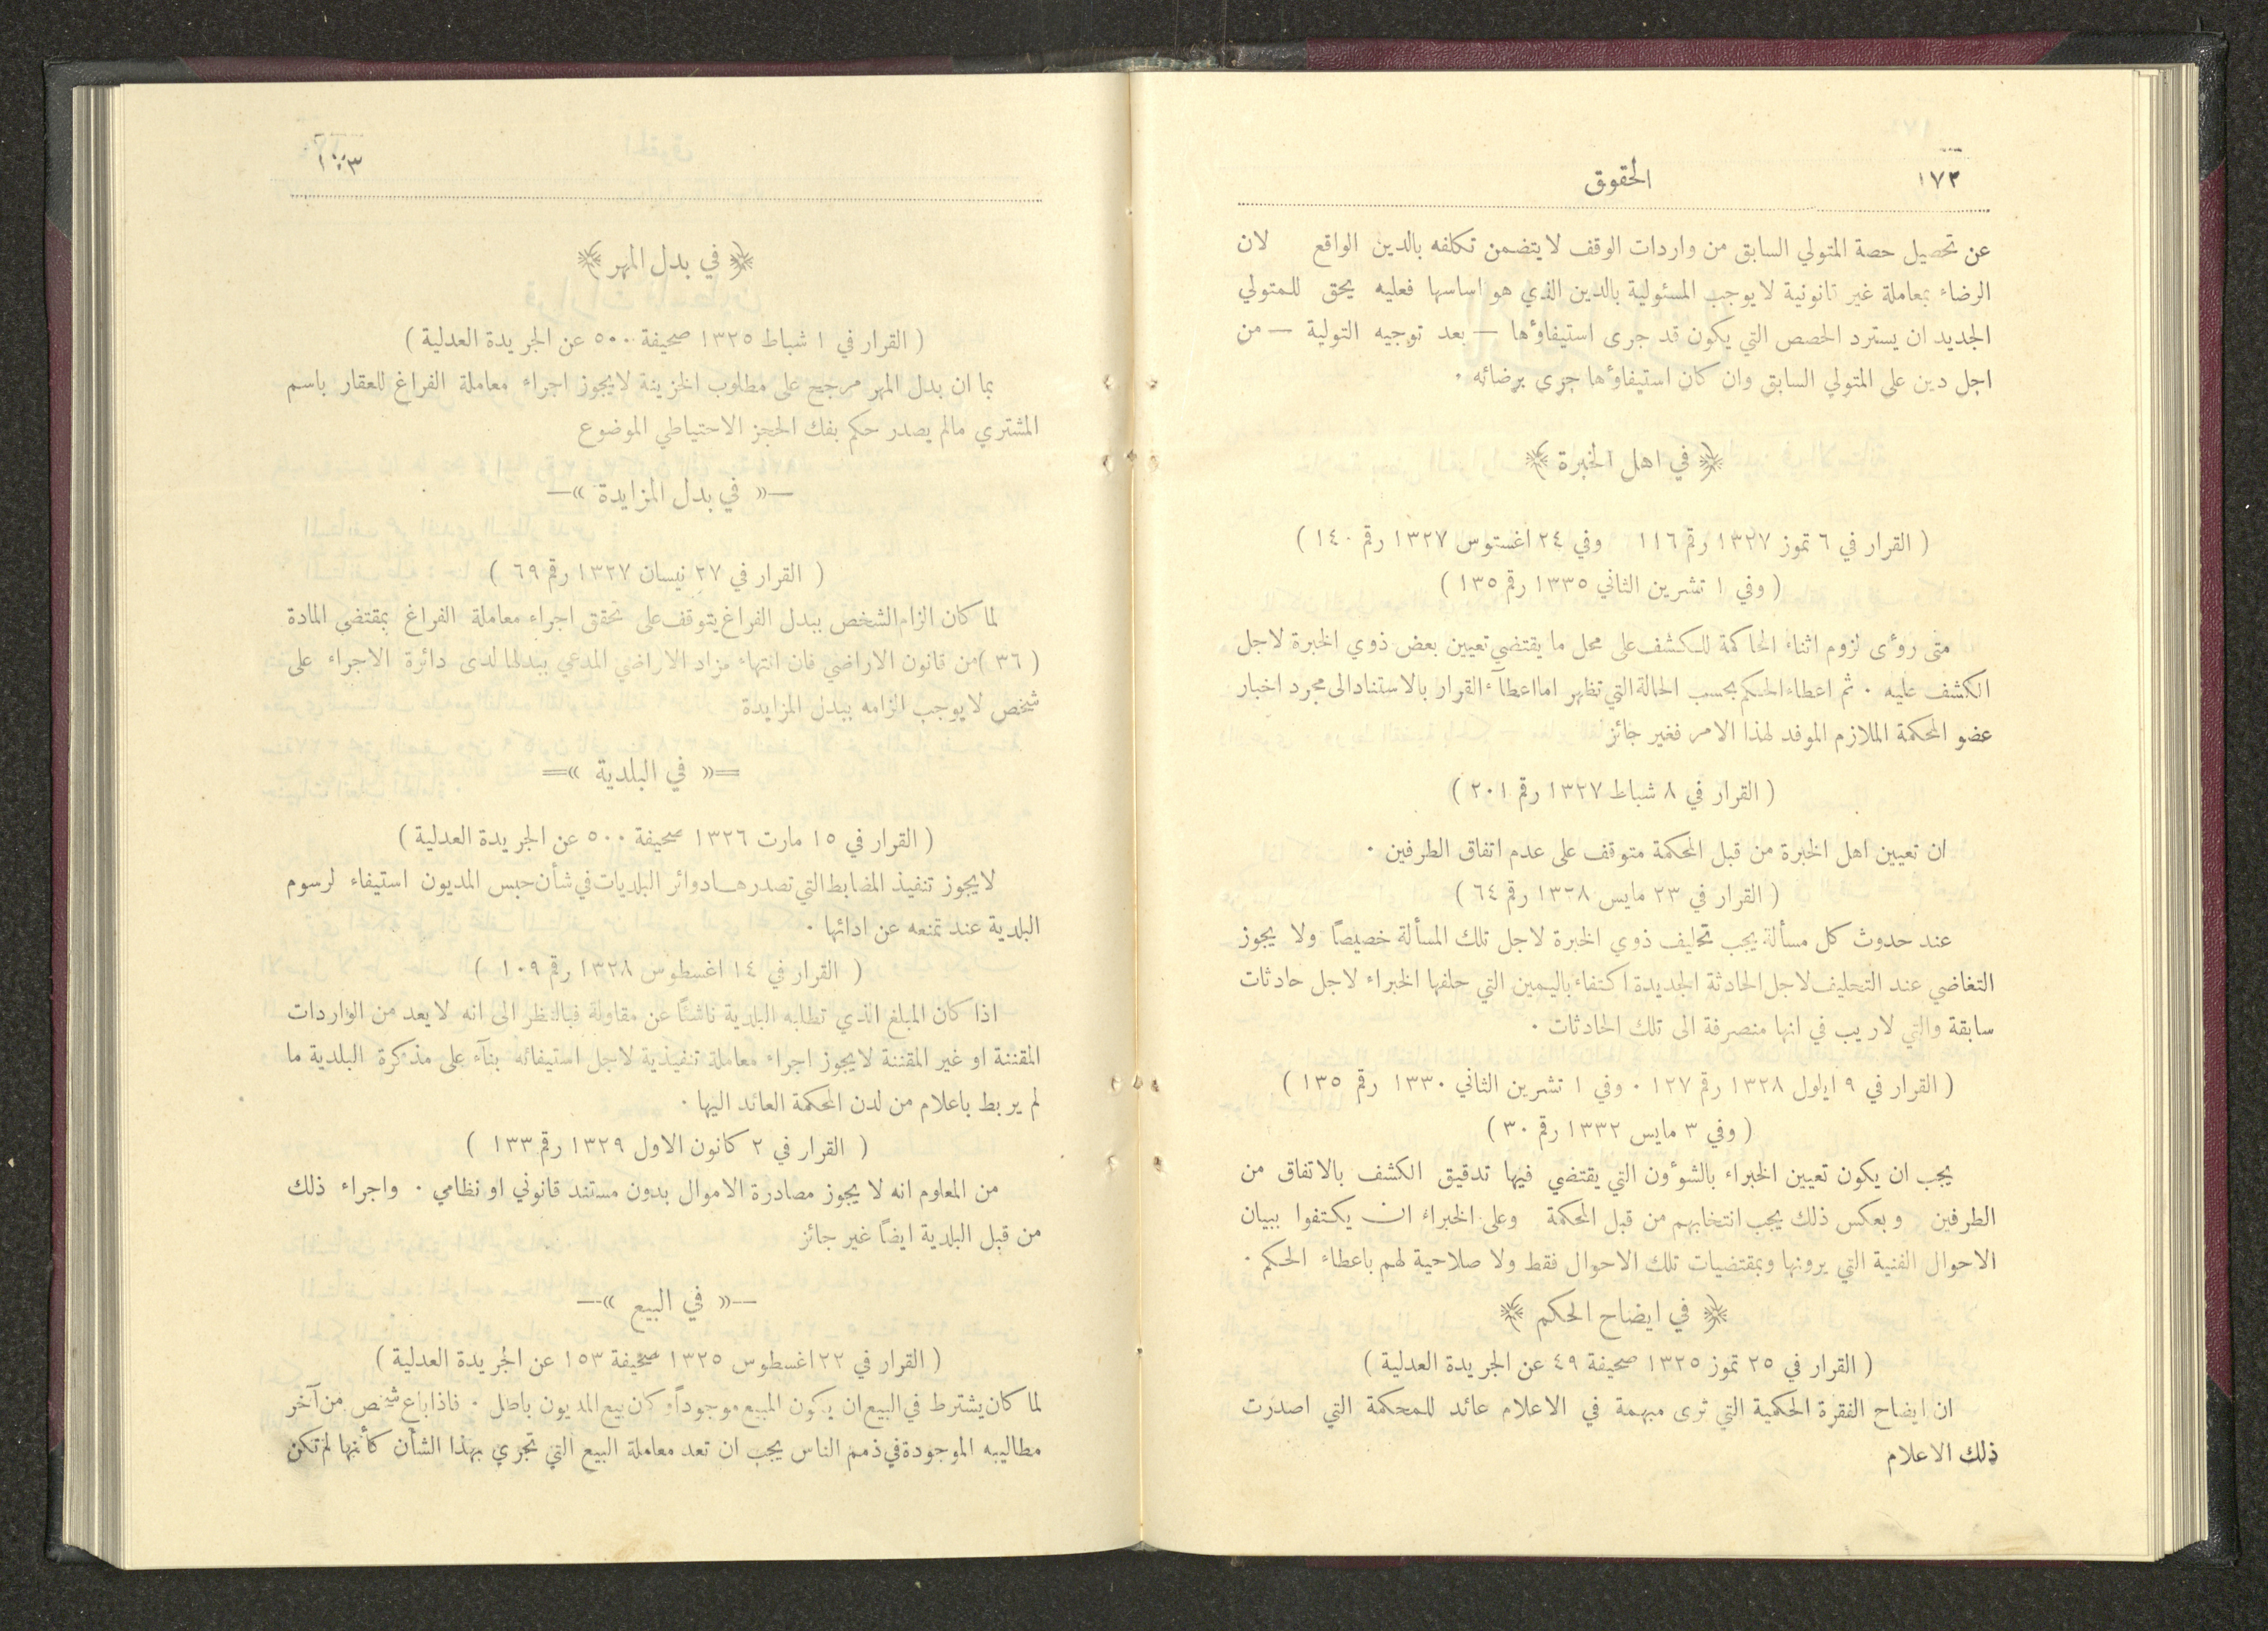 ١٧٢
الحقوق
عن تحصيل حصة المتولي السابق من واردات الوقف لا يتضمن تكلفه بالدين الواقع لان
الرضاء بمعاملة غير قانونية لا يوجب المسئولية بالدين الذي هو اساسها فعليه يحق للمتولي
الجديد ان يسترد الحصص التي يكون قد جرى استيفاؤها — بعد توجيه التولية — من
اجل دين على المتولي السابق وان كان استيفاؤها جرى برضائه ٠
﴿ في اهل الخبرة ﴾
( القرار في ٦ تموز ١٣٢٧ رقم ١١٦ وفي ٢٤ اغستوس ١٣٢٧ رقم ١٤٠ )
( وفي ١ تشرين الثاني ١٣٣٥ رقم ١٣٥ )
متى رؤى لزوم اثناء المحاكمة للكشف على محل ما يقتضي تعيين بعض ذوي الخبرة لاجل
الكشف عليه ٠ ثم اعطاء الحكم بحسب الحالة التي تظهر اما اعطآء القرار بالاستناد الى مجرد اخبار
عضو المحكمة الملازم الموفد لهذا الامر فغير جائز
( القرار في ٨ شباط ١٣٢٧ رقم ٢٠١ )
ان تعيين اهل الخبرة من قبل المحكمة متوقف على عدم اتفاق الطرفين ٠
( القرار في ٢٣ مايس ١٣٢٨ رقم ٦٤ )
عند حدوث كل مسألة يجب تحليف ذوي الخبرة لاجل تلك المسألة خصيصاً ولا يجوز
التغاضي عند التحليف لاجل الحادثة الجديدة اكتفاء باليمين التي حلفها الخبراء لاجل حادثات
سابقة والتي لاريب في انها منصرفة الى تلك الحادثات ٠
( القرار في ٩ ايلول ١٣٢٨ رقم ١٢٧ ٠ وفي ١ تشرين الثاني ١٣٣٠ رقم ١٣٥ )
( وفي ٣ مايس ١٣٣٢ رقم ٣٠ )
يجب ان يكون تعيين الخبراء بالشوؤن التي يقتضي فيها تدقيق الكشف بالاتفاق من
الطرفين وبعكس ذلك يجب انتخابهم من قبل المحكمة وعلى الخبراء ان يكتفوا ببيان
الاحوال الفنية التي يرونها وبمقتضيات تلك الاحوال فقط ولا صلاحية لهم باعطاء الحكم ٠
﴿ في ايضاح الحكم ﴾
( القرار في ٢٥ تموز ١٣٢٥ صحيفة ٤٩ عن الجريدة العدلية )
ان ايضاح الفقرة الحكمية التي ترى مبهمة في الاعلام عائد للمحكمة التي اصدرت
ذلك الاعلام
﴿ في بدل المهر ﴾
( القرار في ١ شباط ١٣٢٥ صحيفة ٥٠٠ عن الجريدة العدلية )
بما ان بدل المهر مرجح على مطلوب الخزينة لايجوز اجراء معاملة الفراغ للعقار باسم
المشتري مالم يصدر حكم بفك الحجز الاحتياطي الموضوع
—« في بدل المزايدة »—
( القرار في ٢٧ نيسان ١٣٢٧ رقم ٦٩ )
لما كان الزام الشخص ببدل الفراغ يتوقف على تحقق اجراء معاملة الفراغ بمقتضى المادة
( ٣٦ ) من قانون الاراضي فان انتهاء مزاد الاراضي المدعي ببدلها لدى دائرة الاجراء على
شخص لا يوجب الزامه ببدل المزايدة
=« في البلدية »=
( القرار في ١٥ مارت ١٣٢٦ صحيفة ٥٠٠ عن الجريدة العدلية )
لايجوز تنفيذ المضابط التي تصدرها دوائر البلديات في شأن حبس المديون استيفاء لرسوم
البلدية عند تمنعه عن ادائها ٠
( القرار في ١٤ اغسطوس ١٣٢٨ رقم ١٠٩ )
اذا كان المبلغ الذي تطلبه البلدية ناشئاً عن مقاولة فبالنظر الى انه لا يعد من الواردات
المقننة او غير المقننة لايجوز اجراء معاملة تنفيذية لاجل استيفائه بنآء على مذكرة البلدية ما
لم يربط باعلام من لدن المحكمة العائد اليها ٠
( القرار في ٢ كانون الاول ١٣٢٩ رقم ١٣٣ )
من المعلوم انه لا يجوز مصادرة الاموال بدون مستند قانوني او نظامي ٠ واجراء ذلك
من قبل البلدية ايضاً غير جائز
—« في البيع »—
( القرار في ٢٢ اغسطوس ١٣٢٥ صحيفة ١٥٣ عن الجريدة العدلية )
لما كان يشترط في البيع ان يكون المبيع موجوداً وكان بيع المديون باطل ٠ فاذا باع شخص من آخر
مطاليبه الموجودة في ذمم الناس يجب ان تعد معاملة البيع التي تجري بهذا الشأن كأنها لم تكن